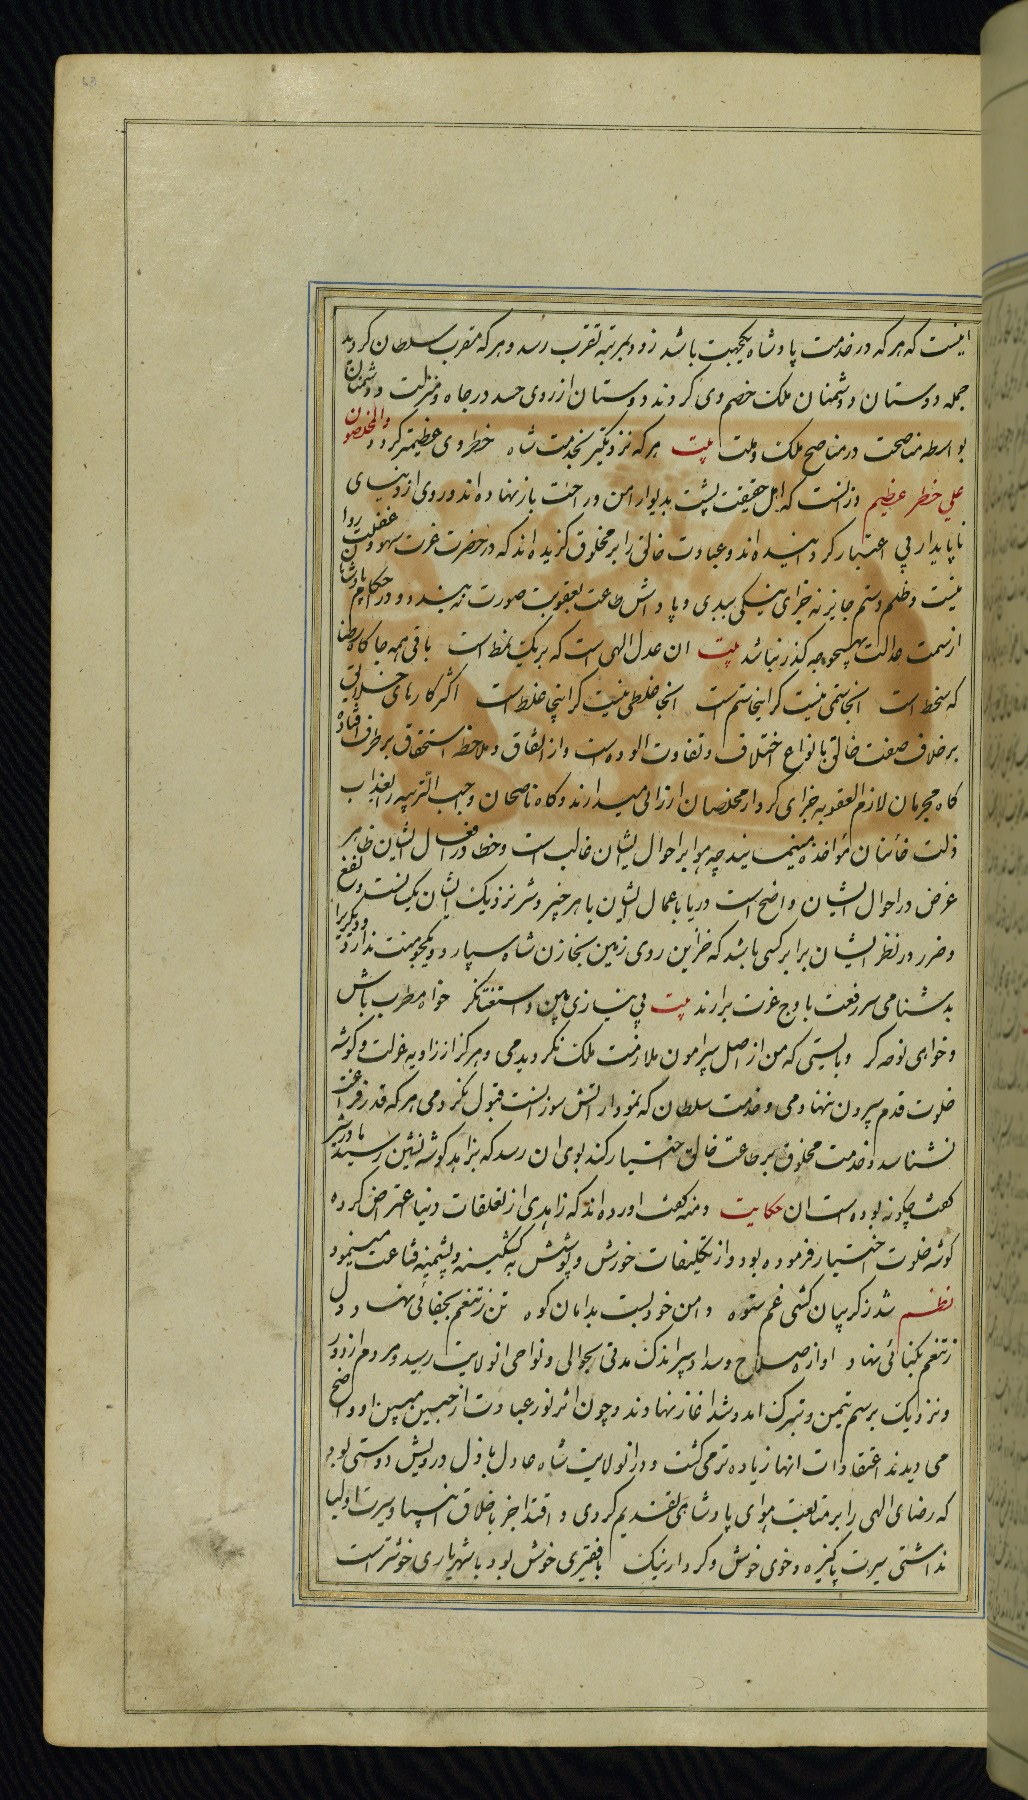 اینست که هر که در خدمت پادشاه یکجهت باشد زود بمرتبه تقرب رسد و هر که مقرب سلطان کردید
جمله دوستان و دشمنان ملک خصم وی کردند دوستان از روی حسد در جاه و منزلت و دشمنان
بواسطه مناصحت در مناصح ملک و ملت بیت هر که نزدیکتر بخدمت شاه خطر وی عظیمتر کردد والمخلصون
علی خطر عظیم و زانست که اهل حقیقت پشت بدیوار امن و راحت باز نهاده اند و روی از دنیای
ناپایدار بی اعتبار کردانیده اند و عبادت خالق را بر مخلوق کزیده اند که در حضرت عزت سهو و غفلت روا
نیست و ظلم و ستم جایز نه جزای نیکی ببدی و پاداش طاعت بعقوبت صورت نه بندد و در احکام پادشاهان
از سمت عدالت بهیچوجه کذر نباشد بیت ان عدل الهی است که بر یک نمط است باقی همه جا کاه رضا
که سخط است انجا ستمی نیست کر اینجا ستم است انجا غلطی نیست کر اینجا غلط است اکثر کارهای خلایق
بر خلاف صفت خالق بانواع اختلاف و تفاوت الوده است و از اتفاق و ملاحظه استحقاق بر طرف افتاده
کاه مجرمان لازم العقوبه جزای کردار مخلصان ارزانی میدارند و کاه ناصحان واجب التربیه را بعذاب
ذلت خائنان مؤاخذه مینمایند چه هوا بر احوال ایشان غالب است و خطا در افعال ایشان ظاهر
غرض در احوال ایشان واضح است و ریا با عمال ایشان باهر خیر و شر نزدیک ایشان یکیست و نفع
و ضرر در نظر ایشان برابر کسی باشد که خزاین روی زمین بخازن شاه سپارد و بیکجو منت ندارد و دیکریرا
بدشنامی سر رفعت باوج عزت برارند بیت بی نیازی بین و استغنا نکر خواه مطرب باش
و خواهی نوحه کر و بایستی که من از اصل پیرامون ملازمت ملک نکردیدمی و هرکز از زاویه عزلت و کوشه
خلوت قدم بیرون ننهادمی و خدمت سلطان که نمودار اتش سوزانست قبول نکردمی هر که قدر فراغت
نشناسد و خدمت مخلوق بر طاعت خالق اختیار کند بوی ان رسد که بزاهد کوشه نشین رسید مادر شیر
کفت چکونه بوده است ان حکایت دمنه کفت اورده اند که زاهدی از تعلقات دنیا اعتراض کرده
کوشه خلوت اختیار فرموده بود و از تکلیفات خورش و پوشش به کشکینه و پشمینه قناعت مینمود
نظم شد ز کریبان کشی غم ستوه دامن خود بست بدامان کوه تن ز تنعم بجفائی نهاد دل
ز تنعم بکنائی نهاد اوازه صلاح و سداد پیر اندک مدتی بحوالی و نواحی انولایت رسید و مردم از دور
و نزدیک برسم تیمن و تبرک امد و شد اغاز نهادند و چون اثر نور عبادت از جبین مبین او واضح
می دیدند اعتقادات انها زیاده تر می کشت و در انولایت شاه عادل باذل درویش دوستی بود
که رضای الهی را بر متابعت هوای پادشاهی تقدیم کردی و اقتدا جز باخلاق انبیا و سیرت اولیا
نداشتی سیرت پاکیزه و خوی خوش و کردار نیک با فقیری خوش بود با شهریاری خوشتر است